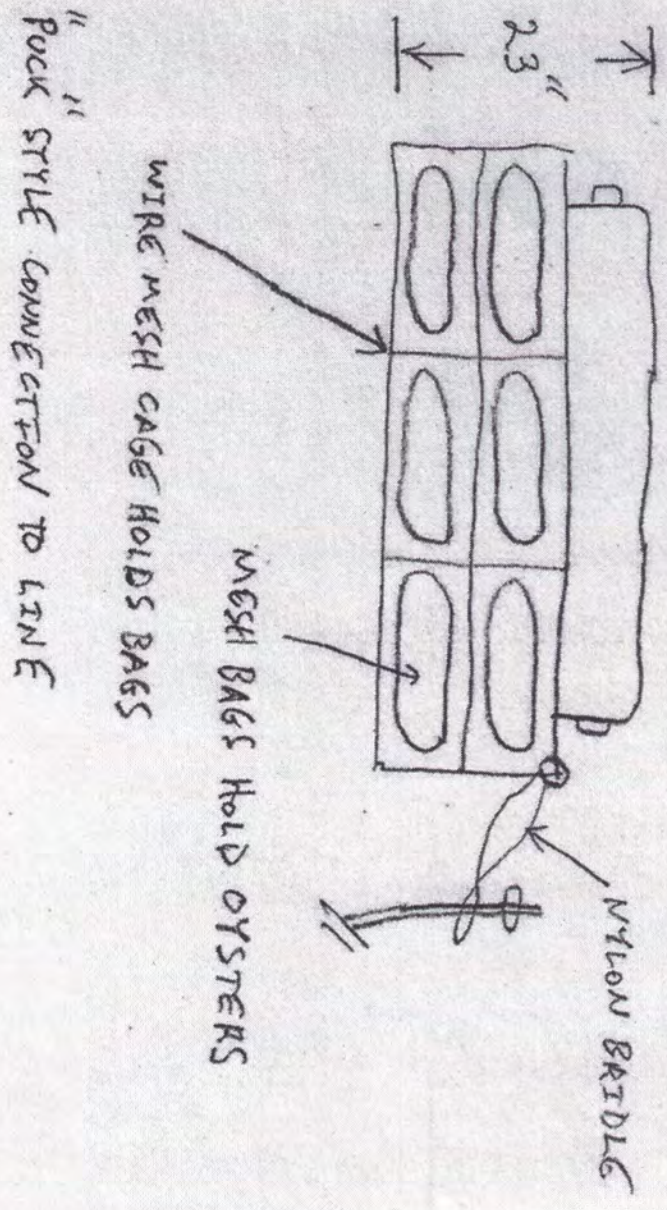 NYLON BRIDLE
23"
MESH BAGS HOLD OYSTERS
WIRE MESH CAGE HOLDS BAGS
"PUCK" STYLE CONNECTION TO LINE